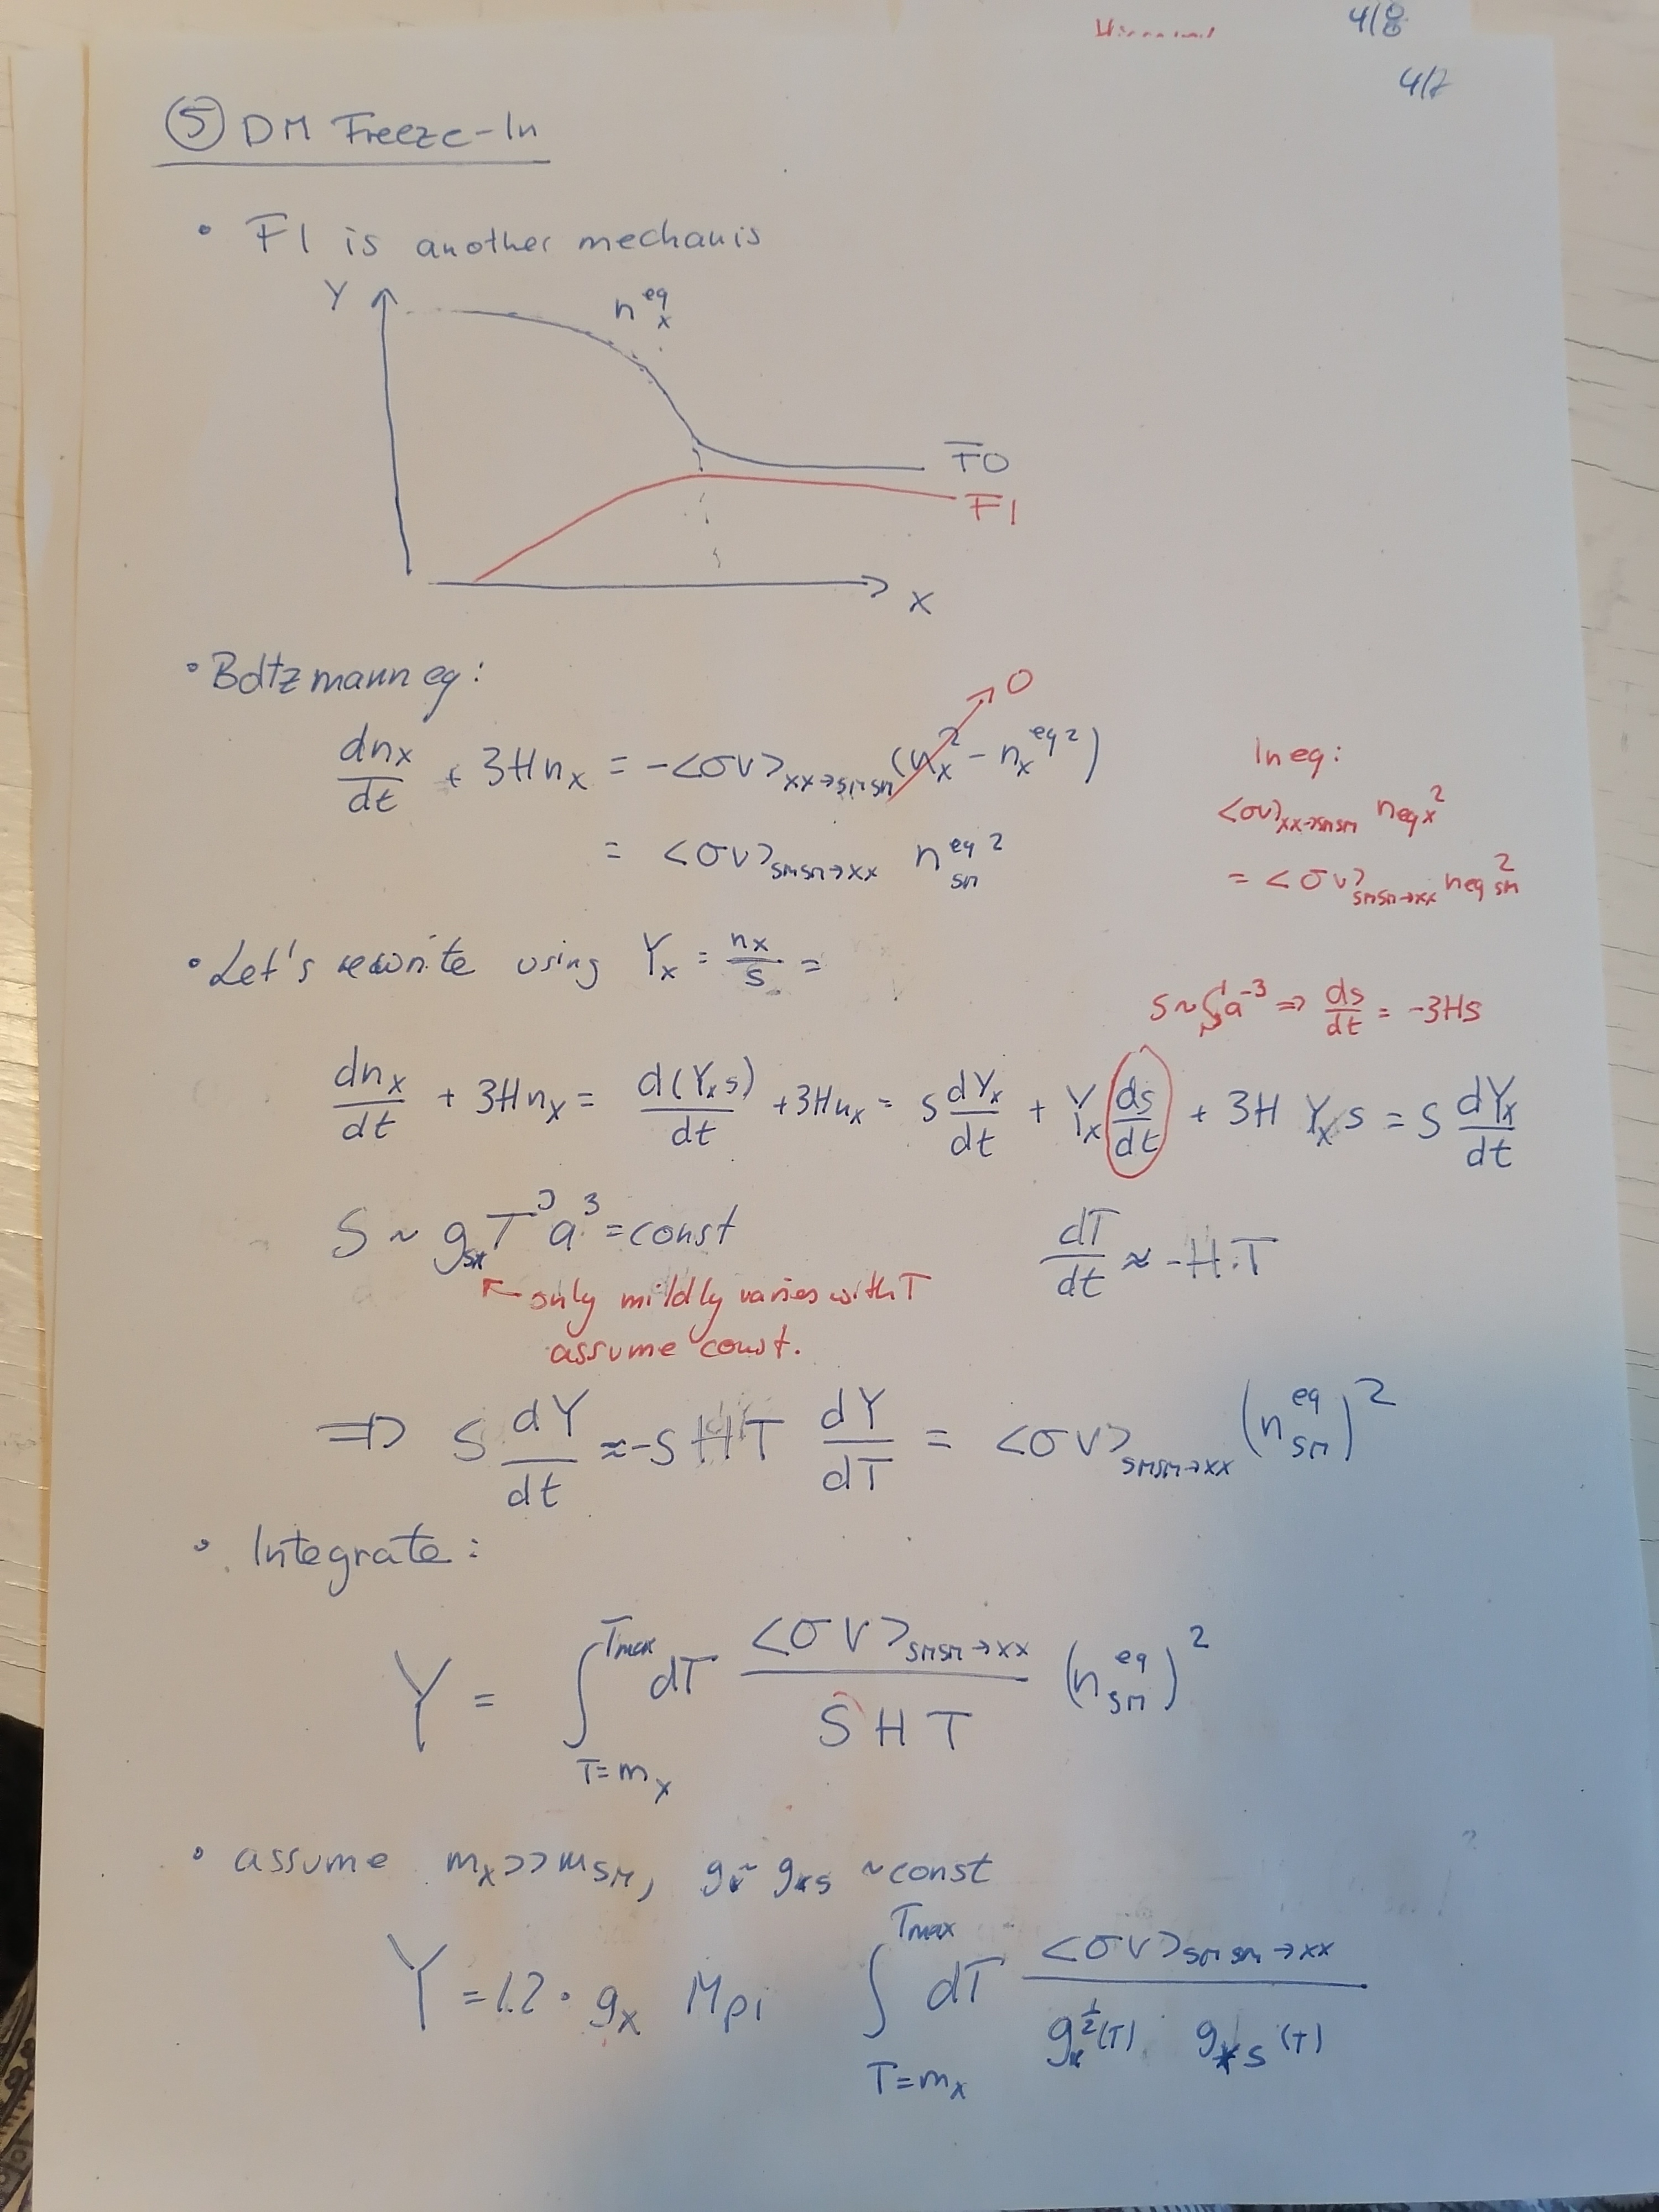 4/8
4/7
⑤ DM Freeze-In
• FI is another mechanis
Y
n^eq_x
FO
FI
x
• Boltzmann eq:
dn_x/dt + 3Hn_x = -<σv>_xx→smsm (n_x^2 - n_x^eq 2) → 0
= <σv>_smsm→xx n_sm^eq 2
In eq:
<σv>_xx→smsm n_eq x^2
= <σv>_smsm→xx n_eq sm^2
• Let's rewrite using Y_x = n_x/s =
ds/dt = -3Hs
dn_x/dt + 3Hn_x = d(Y_x s)/dt + 3Hn_x = s dY_x/dt + Y_x ds/dt + 3H Y_x s = s dY_x/dt
S ~ g_s* T^3 a^3 = const
dT/dt ≈ -H·T
only mildly varies with T
assume const.
⇒ s dY/dt ≈ -s H T dY/dT = <σv>_smsm→xx (n_sm^eq)^2
• Integrate:
Y = ∫_{T=m_x}^{Tmax} dT <σv>_smsm→xx / (S H T) (n_sm^eq)^2
• assume m_x >> m_sm, g_* ~ g_*s ~ const
Y = 1.2 · g_x M_pl ∫_{T=m_x}^{Tmax} dT <σv>_smsm→xx / (g_*^{1/2}(T) g_*s(T))